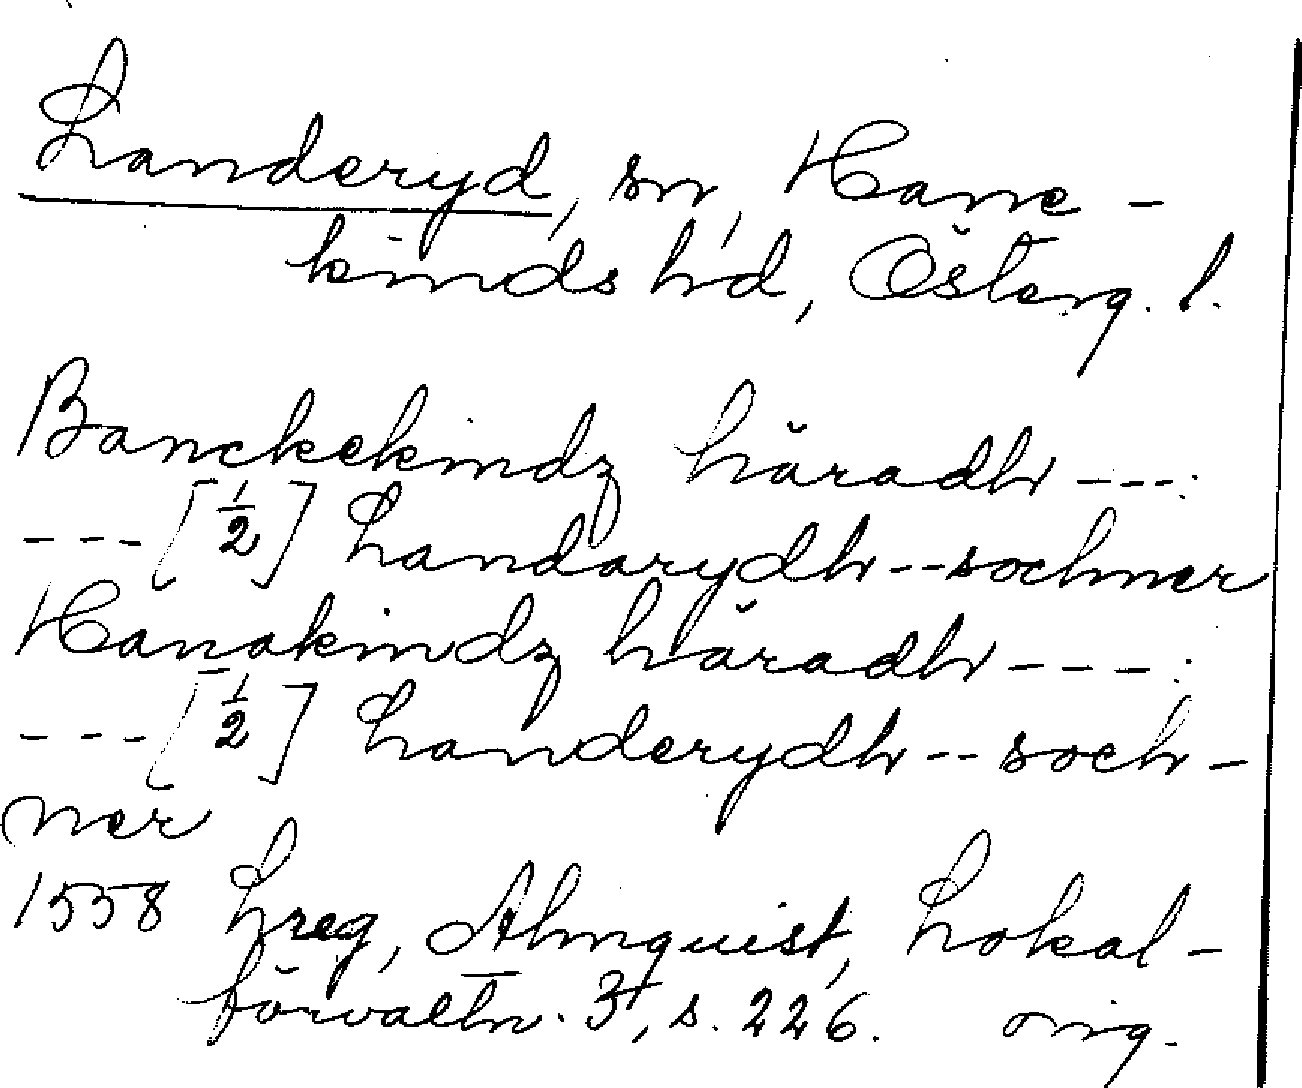 Landeryd, sn, Hane-
kinds hd, Österg. l.
Banckekindz häradh ---:
---[½] Landarydh--sochner
Hanakindz häradh ---:
---[½] Landerydh--soch-
ner
1558 Lreg, Almquist, Lokal-
förvaltn. 3, s. 226. orig.